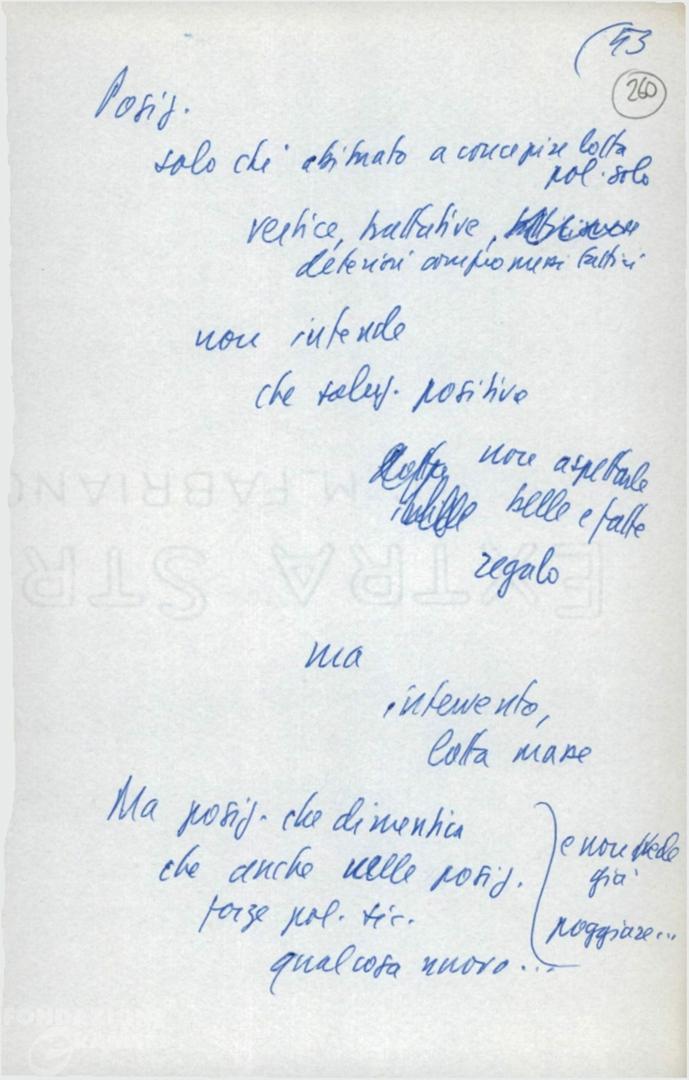 53
260
Posiz.
solo chi abituato a concepire lotta
pol. solo
vertice, trattative,
deteriori compromessi tattici
non intende
che soluz. positive
non aspettarle
belle e fatte
regalo
ma
intervento,
lotta masse
Ma posiz. che dimentica
che anche nelle posiz.
forze pol. sic.
qualcosa nuovo...
e non vede
già
poggiare...
M. FABRIANO
EXTRA STR
FONDAZIONE